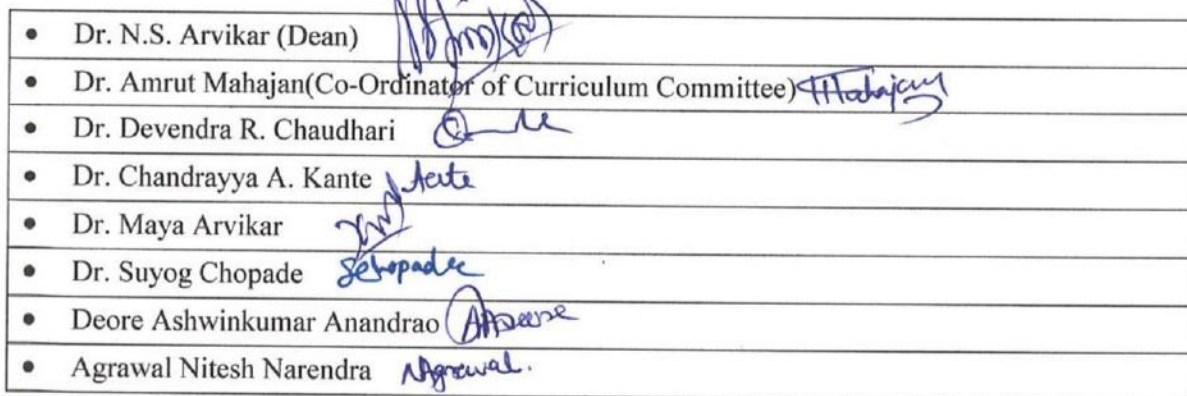 • Dr. N.S. Arvikar (Dean)
• Dr. Amrut Mahajan(Co-Ordinator of Curriculum Committee) Mahajan
• Dr. Devendra R. Chaudhari
• Dr. Chandrayya A. Kante
• Dr. Maya Arvikar
• Dr. Suyog Chopade SChopade
• Deore Ashwinkumar Anandrao
• Agrawal Nitesh Narendra NAgrawal.